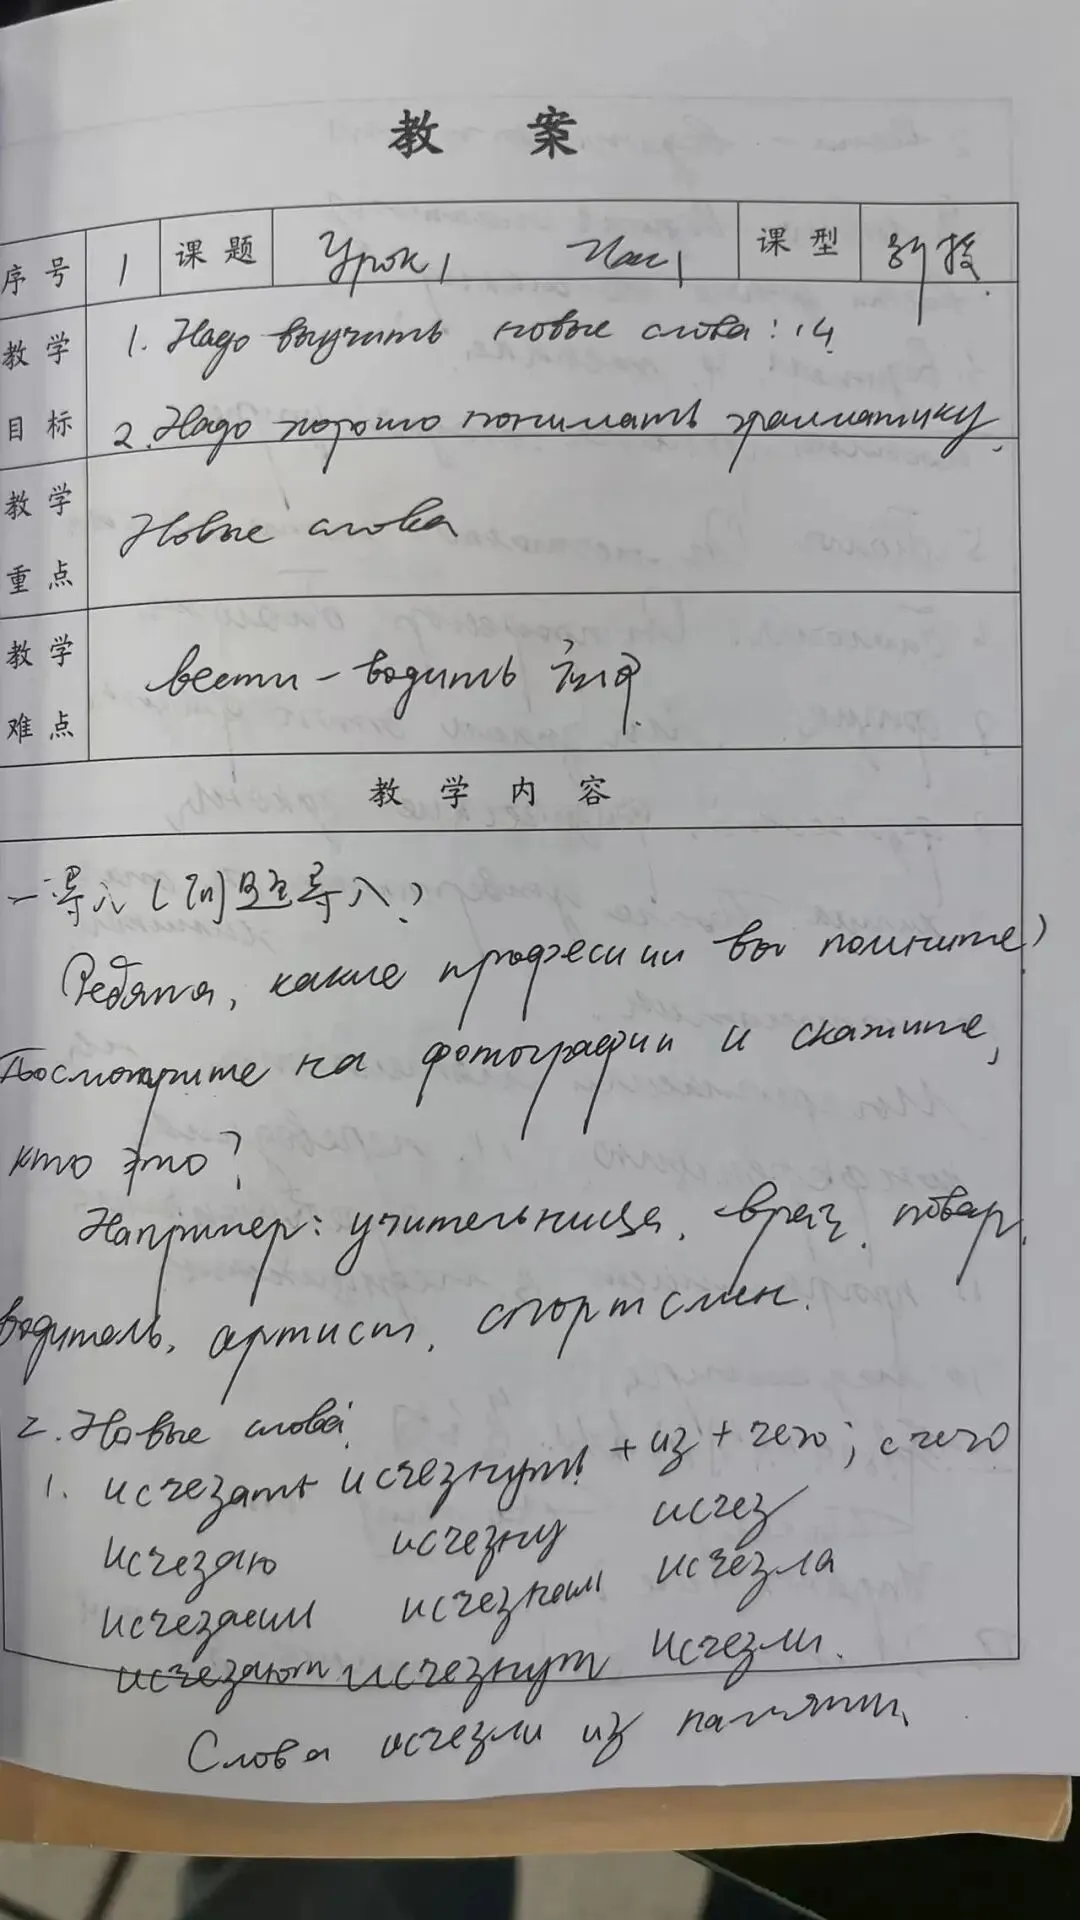 教 案
序号 1 课题 Урок 1 Час 1 课型 新授
教学目标
1. Надо выучить новые слова: 14
2. Надо хорошо понимать грамматику.
教学重点
Новые слова
教学难点
вести – водить 应用
教学内容
一导入(问题导入)
Ребята, какие професиии вы помните?
Посмотрите на фотографии и скажите,
кто это?
Например: учительница, врач, повар,
водитель, артист, спортсмен.
2. Новые слова:
1. исчезать исчезнуть + из + чего; с чего
исчезаю исчезну исчез
исчезаешь исчезнешь исчезла
исчезают исчезнут исчезли.
Слова исчезли из памяти.